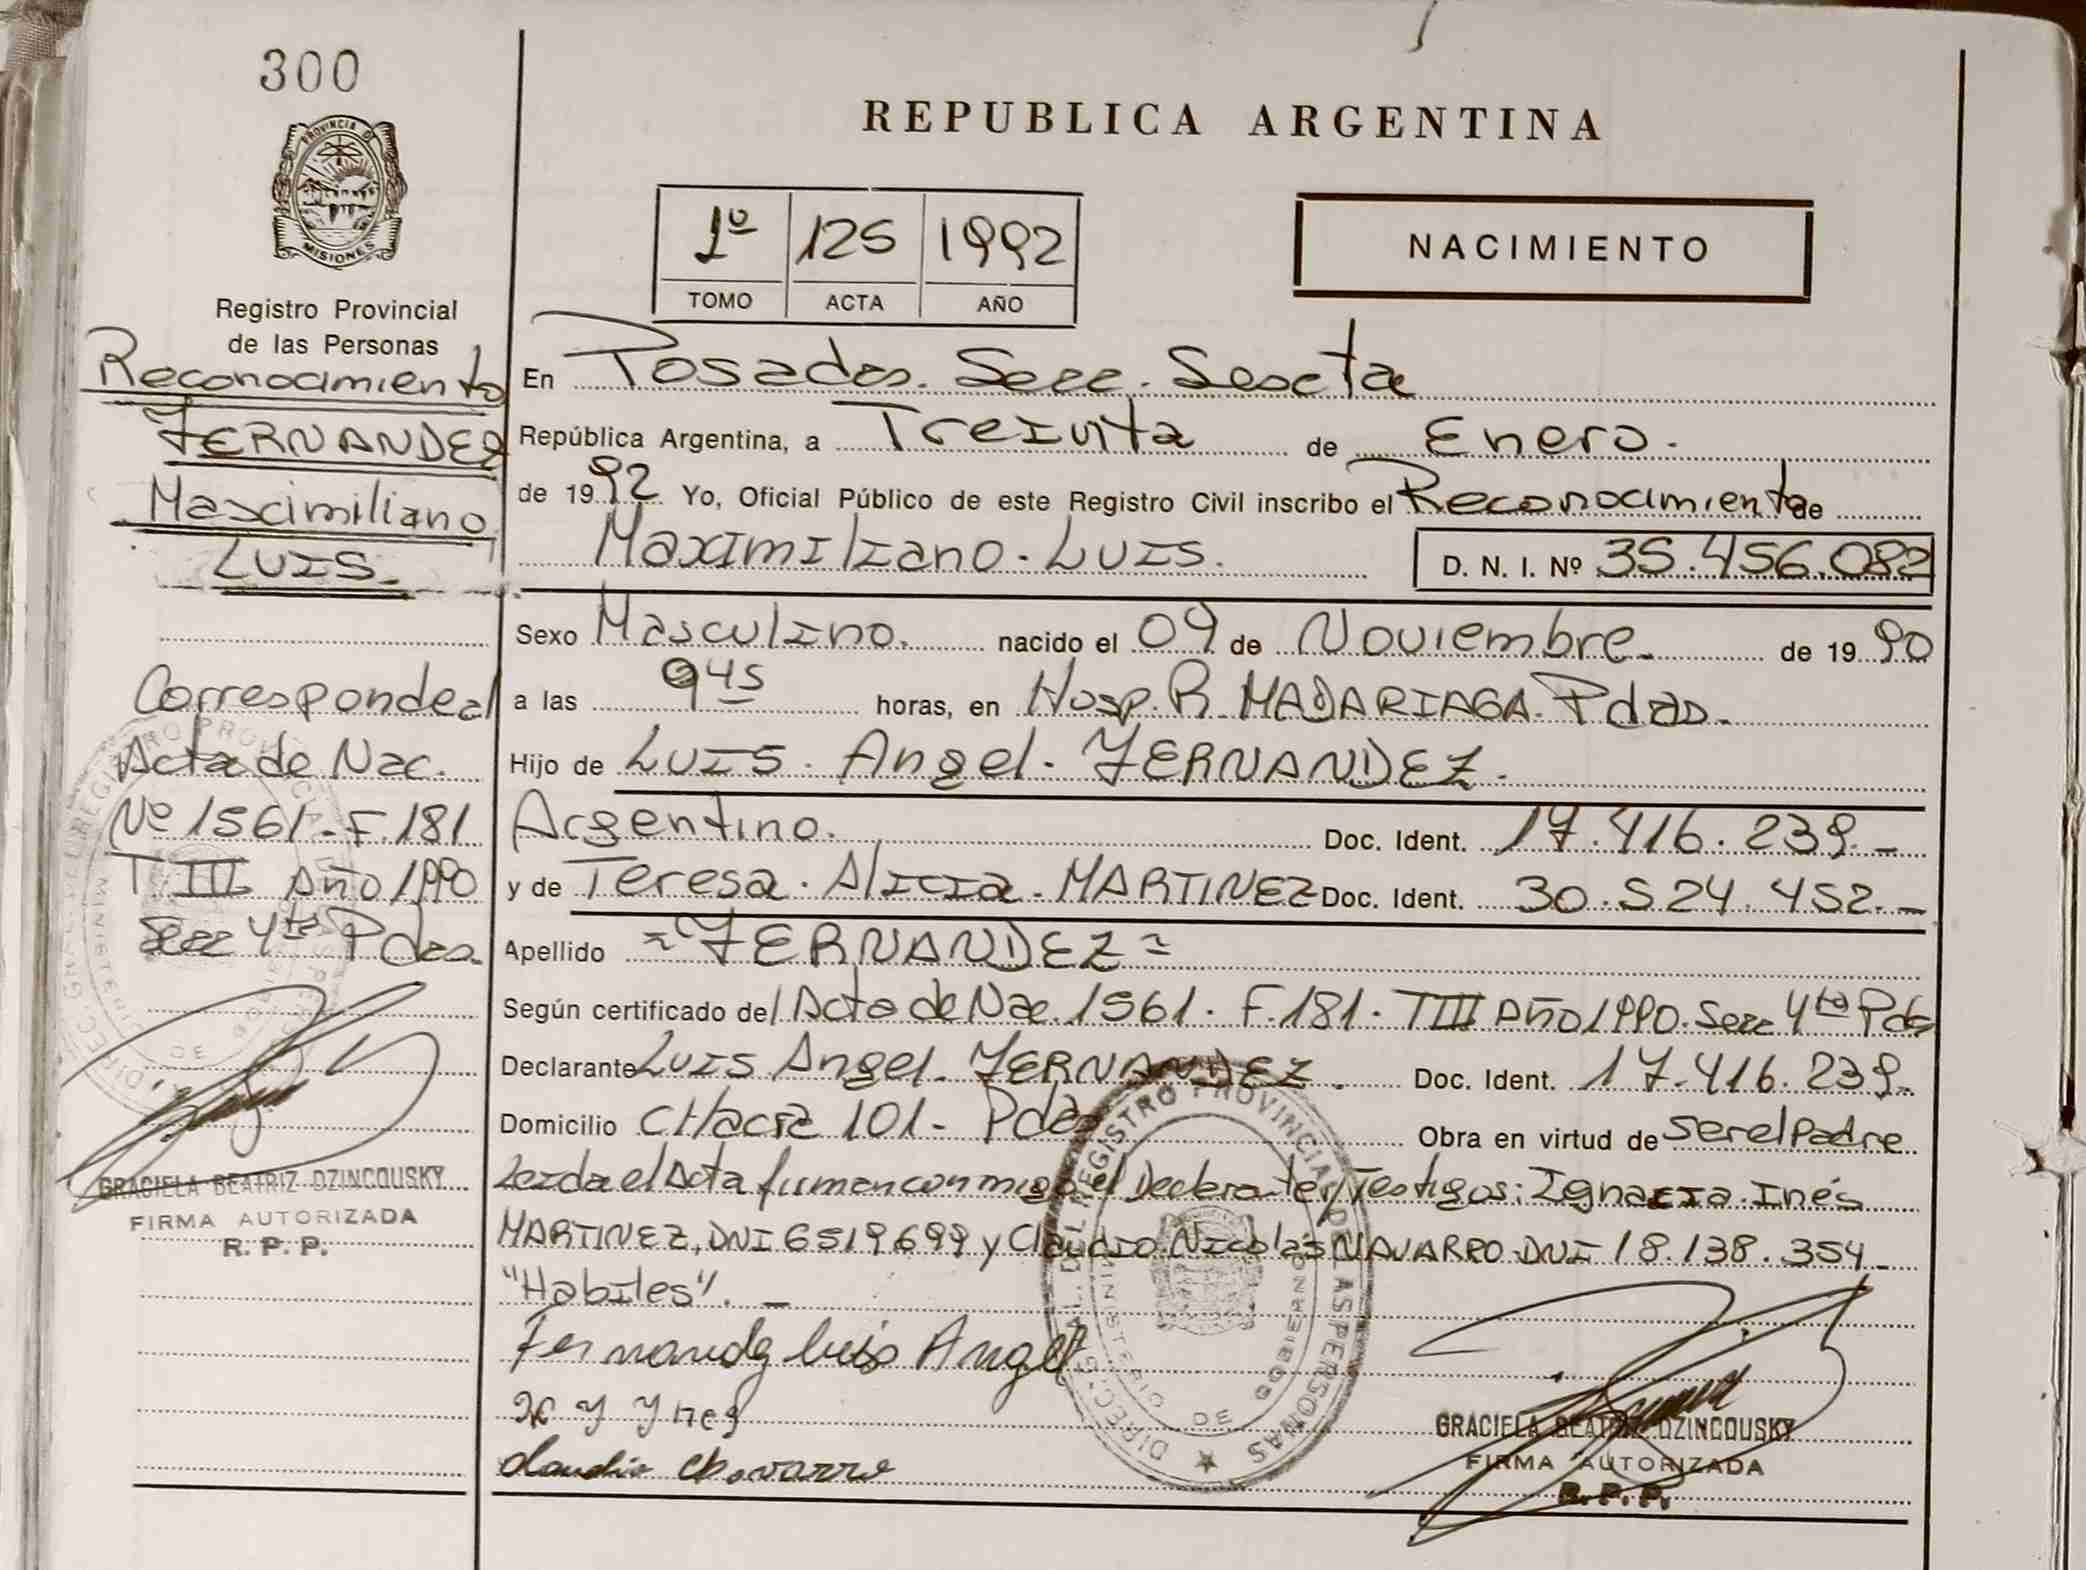 300
PROVINCIA D
MISIONES
Registro Provincial
de las Personas
Reconocimiento
FERNANDEZ
Maximiliano
LUIS.
Corresponde al
Acta de Nac.
Nº 1561 - F. 181
T III Año 1990
Secc 4ta Pdas.
GRACIELA BEATRIZ DZINCOUSKY
FIRMA AUTORIZADA
R. P. P.
REPUBLICA ARGENTINA
1º 125 1992
TOMO ACTA AÑO
NACIMIENTO
En Posadas. Secc. Sexta
República Argentina, a Treinta de Enero.
de 1992 Yo, Oficial Público de este Registro Civil inscribo el Reconocimiento de
Maximiliano. LUIS. D. N. I. Nº 35.456.082
Sexo Masculino. nacido el 09 de Noviembre. de 1990
a las 9 45 horas, en Hosp. R. MADARIAGA. Pdas.
Hijo de LUIS. Angel. FERNANDEZ.
Argentino. Doc. Ident. 17.416.239.-
y de Teresa. Alicia. MARTINEZ Doc. Ident. 30.524.452.-
Apellido =FERNANDEZ=
Según certificado del Acta de Nac. 1561. F.181. TIII Año 1990. Secc 4ta Pdas
Declarante LUIS Angel. FERNANDEZ. Doc. Ident. 17.416.239.
Domicilio CHacra 101 - Pdas Obra en virtud de ser el Padre
Leida el Acta firman conmigo el Declarante y Testigos: Ignacia. Inés
MARTINEZ, DNI 6519699 y Claudio Nicolás NAVARRO DNI 18.138.354_
"Habiles". _
Fernandez Luis Angel
Claudio Navarro
DIRECC. GRAL. DEL REGISTRO PROVINCIAL DE LAS PERSONAS
MINISTERIO DE GOBIERNO
GRACIELA BEATRIZ DZINCOUSKY
FIRMA AUTORIZADA
R. P. P.